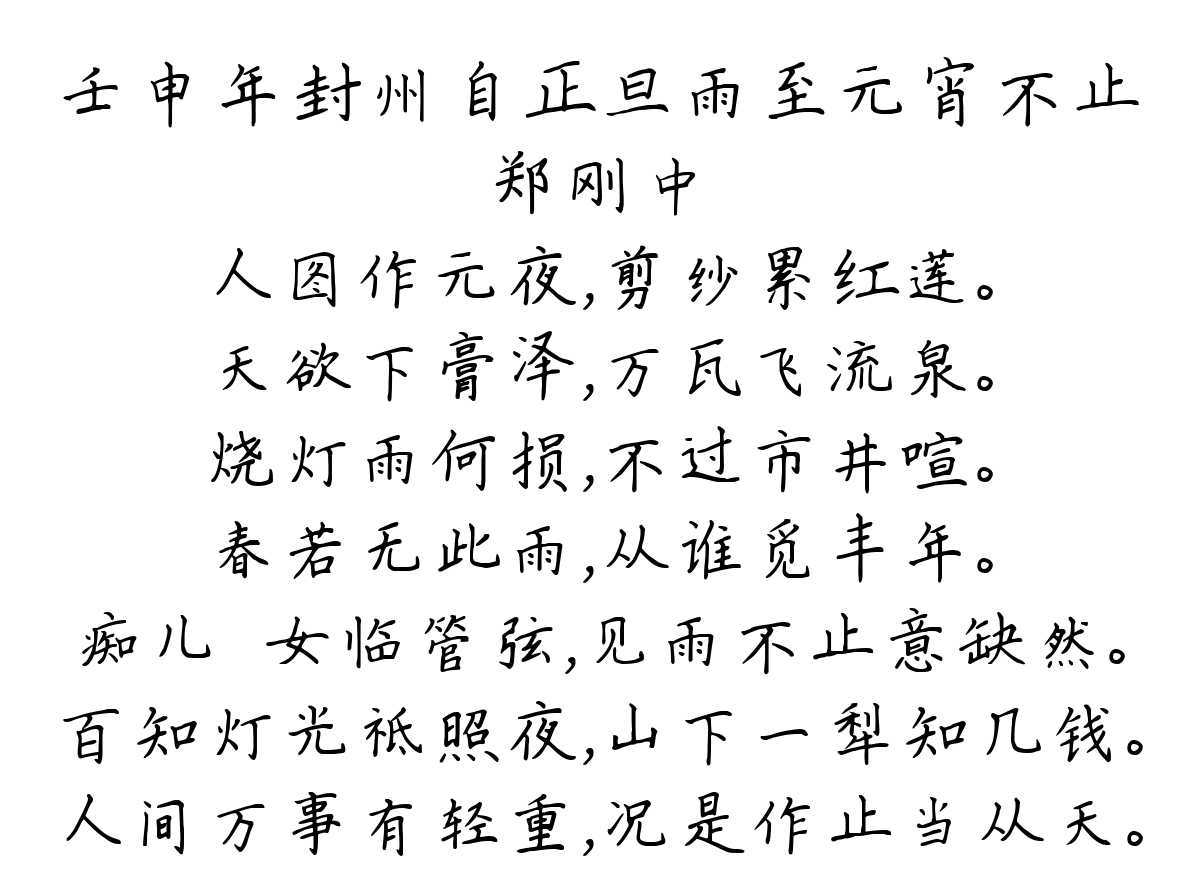 壬申年封州自正旦雨至元宵不止
郑刚中
人图作元夜,剪纱累红莲。
天欲下膏泽,万瓦飞流泉。
烧灯雨何损,不过市井喧。
春若无此雨,从谁觅丰年。
痴儿 女临管弦,见雨不止意缺然。
百知灯光祗照夜,山下一犁知几钱。
人间万事有轻重,况是作止当从天。